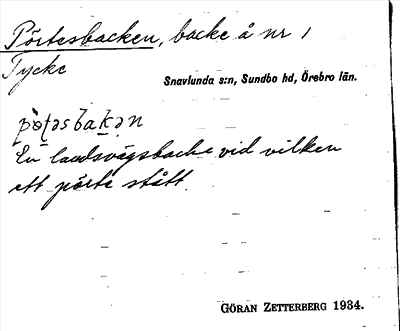 Pörtesbacken, backe å nr 1
Tycke
Snavlunda s:n, Sundbo hd, Örebro län.
pò̤ʈəsbakə̣n
En landsvägsbacke vid vilken
ett pörte stått.
GÖRAN ZETTERBERG 1934.